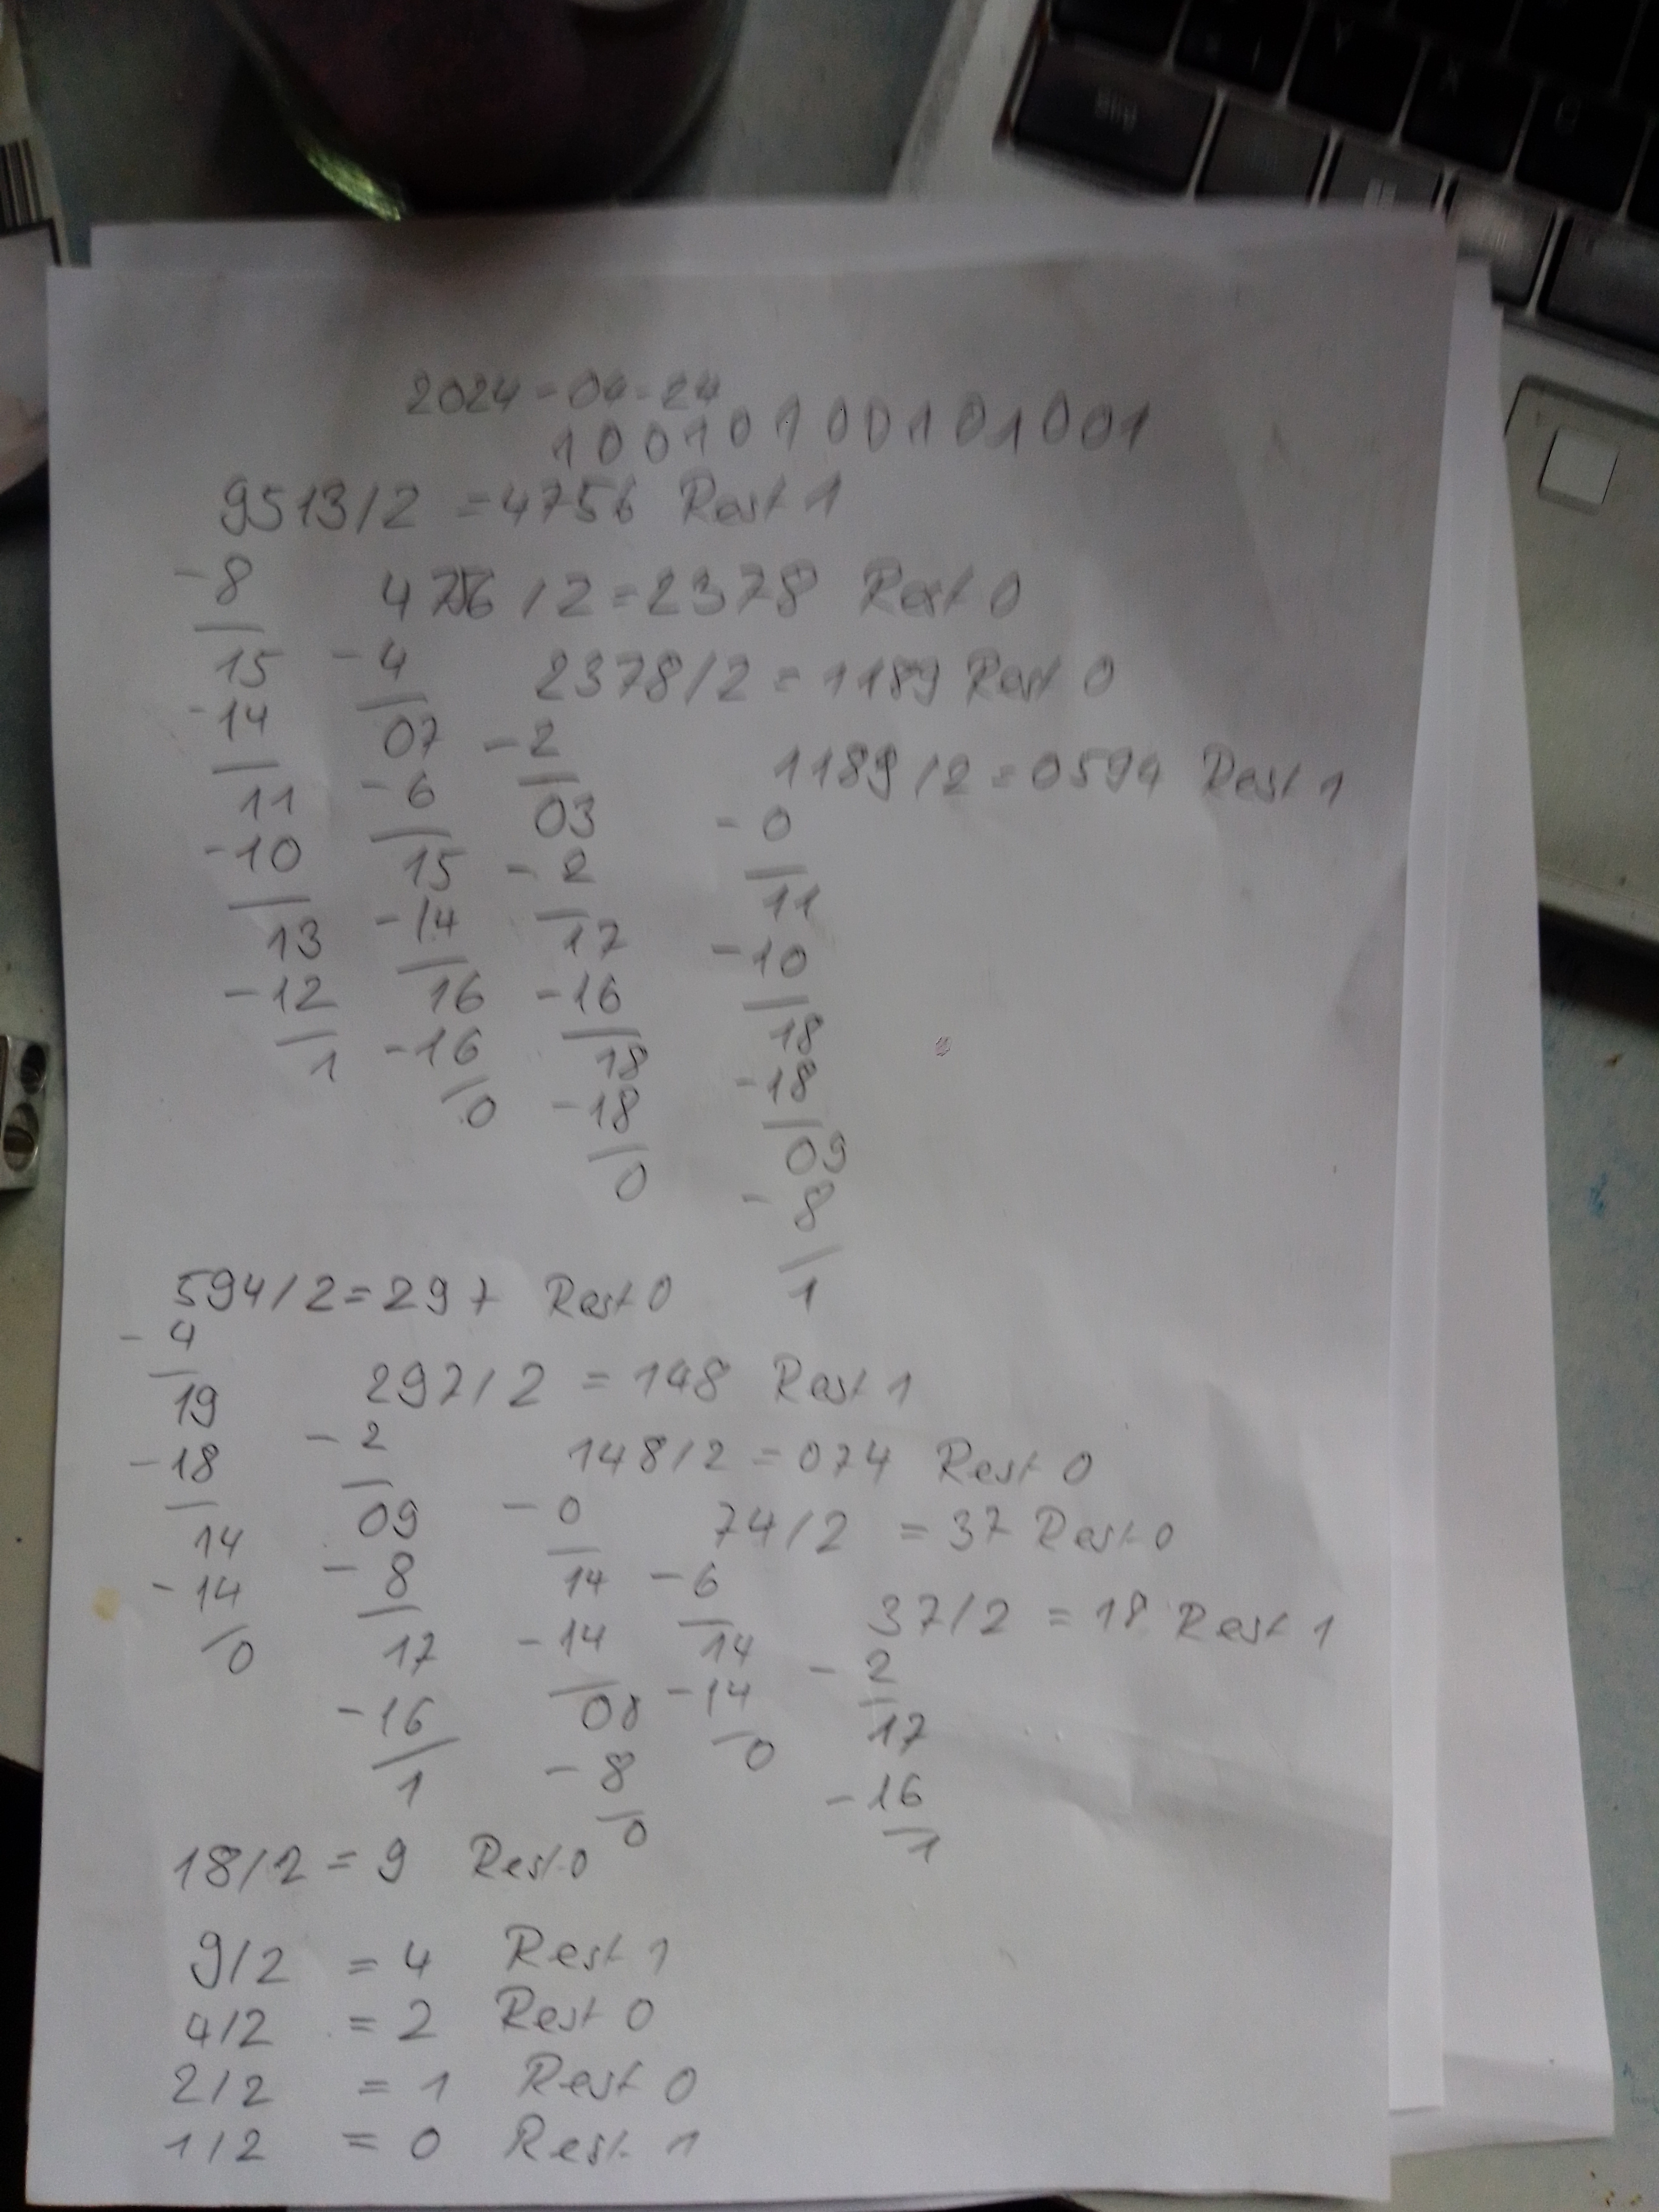 2024-04-24
10010100101001
9513/2 = 4756 Rest 1
-8
15
-14
11
-10
13
-12
1
4756/2 = 2378 Rest 0
-4
07
-6
15
-14
16
-16
0
2378/2 = 1189 Rest 0
-2
03
-2
17
-16
18
-18
0
1189/2 = 0594 Rest 1
-0
11
-10
18
-18
09
-8
1
594/2 = 297 Rest 0
-4
19
-18
14
-14
0
297/2 = 148 Rest 1
-2
09
-8
17
-16
1
148/2 = 074 Rest 0
-0
14
-14
08
-8
0
74/2 = 37 Rest 0
-6
14
-14
0
37/2 = 18 Rest 1
-2
17
-16
1
18/2 = 9 Rest 0
9/2 = 4 Rest 1
4/2 = 2 Rest 0
2/2 = 1 Rest 0
1/2 = 0 Rest 1